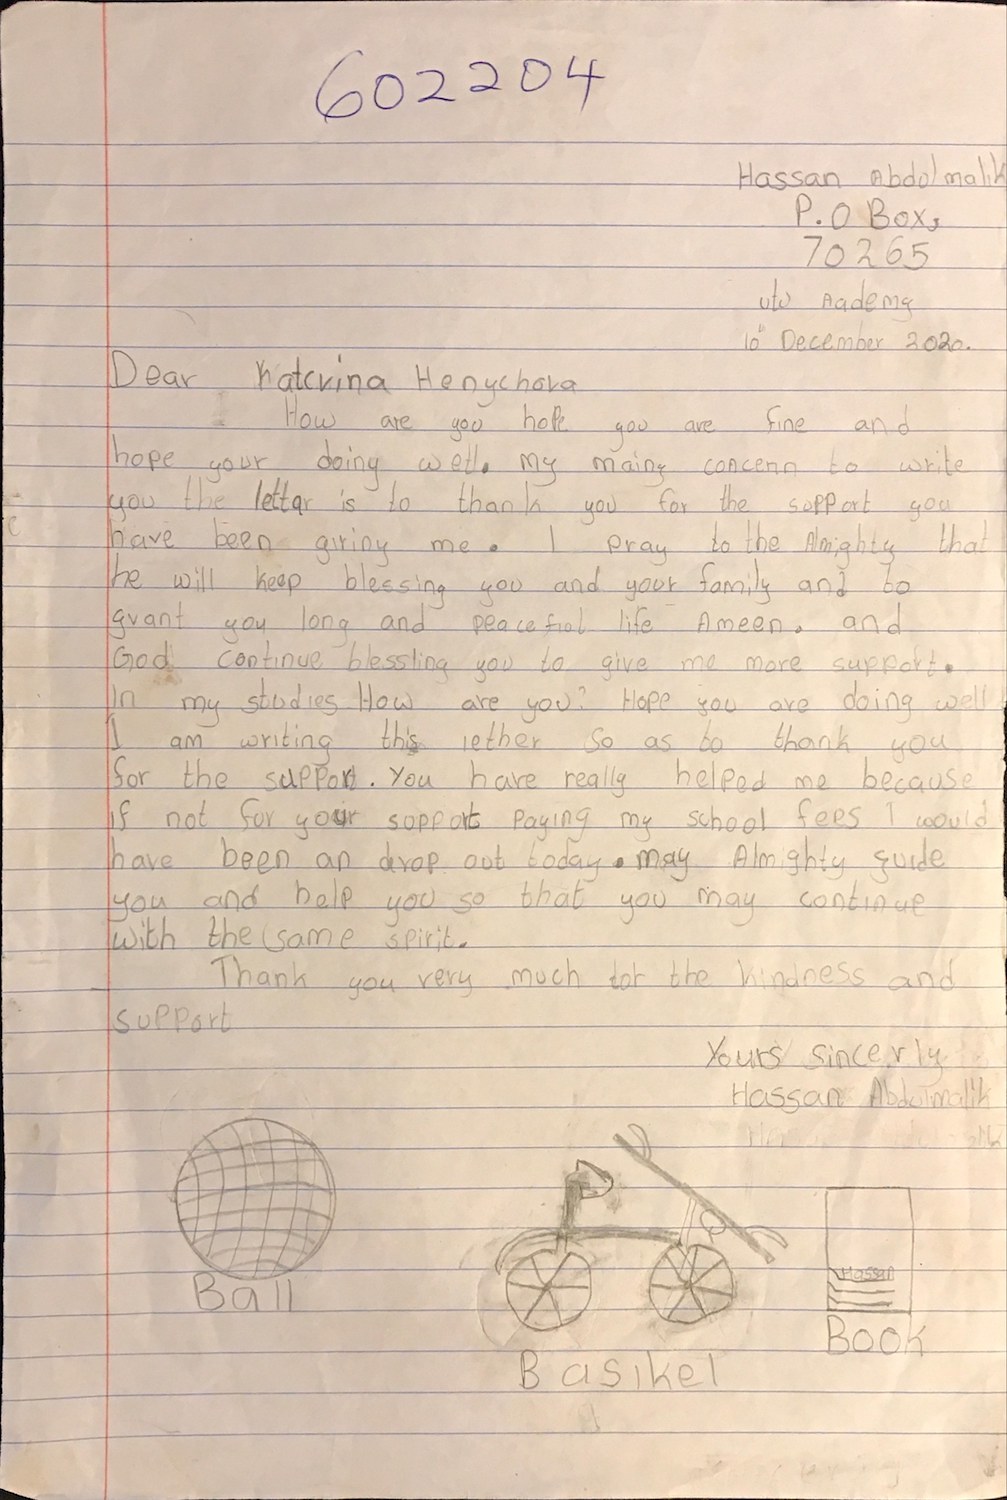 602204
Hassan Abdulmalik
P.O Box,
70265
utu Aademy
10th December 2020.
Dear Katerina Henychova
How are you hope you are fine and
hope your doing well. my maing concern to write
you the lettar is to thank you for the support you
have been giving me. I pray to the Almighty that
he will keep blessing you and your family and to
grant you long and peacefiol life Ameen. and
God continue blessling you to give me more support.
In my studies How are you? Hope you are doing well
I am writing this lether so as to thank you
for the support. You have really helped me because
if not for your support paying my school fees I would
have been an drop out today. may Almighty guide
you and help you so that you may continue
with the same spirit.
Thank you very much for the kindness and
support
Yours sincerly
Hassan Abdulmalik
Hassan
Ball
Book
Basikel